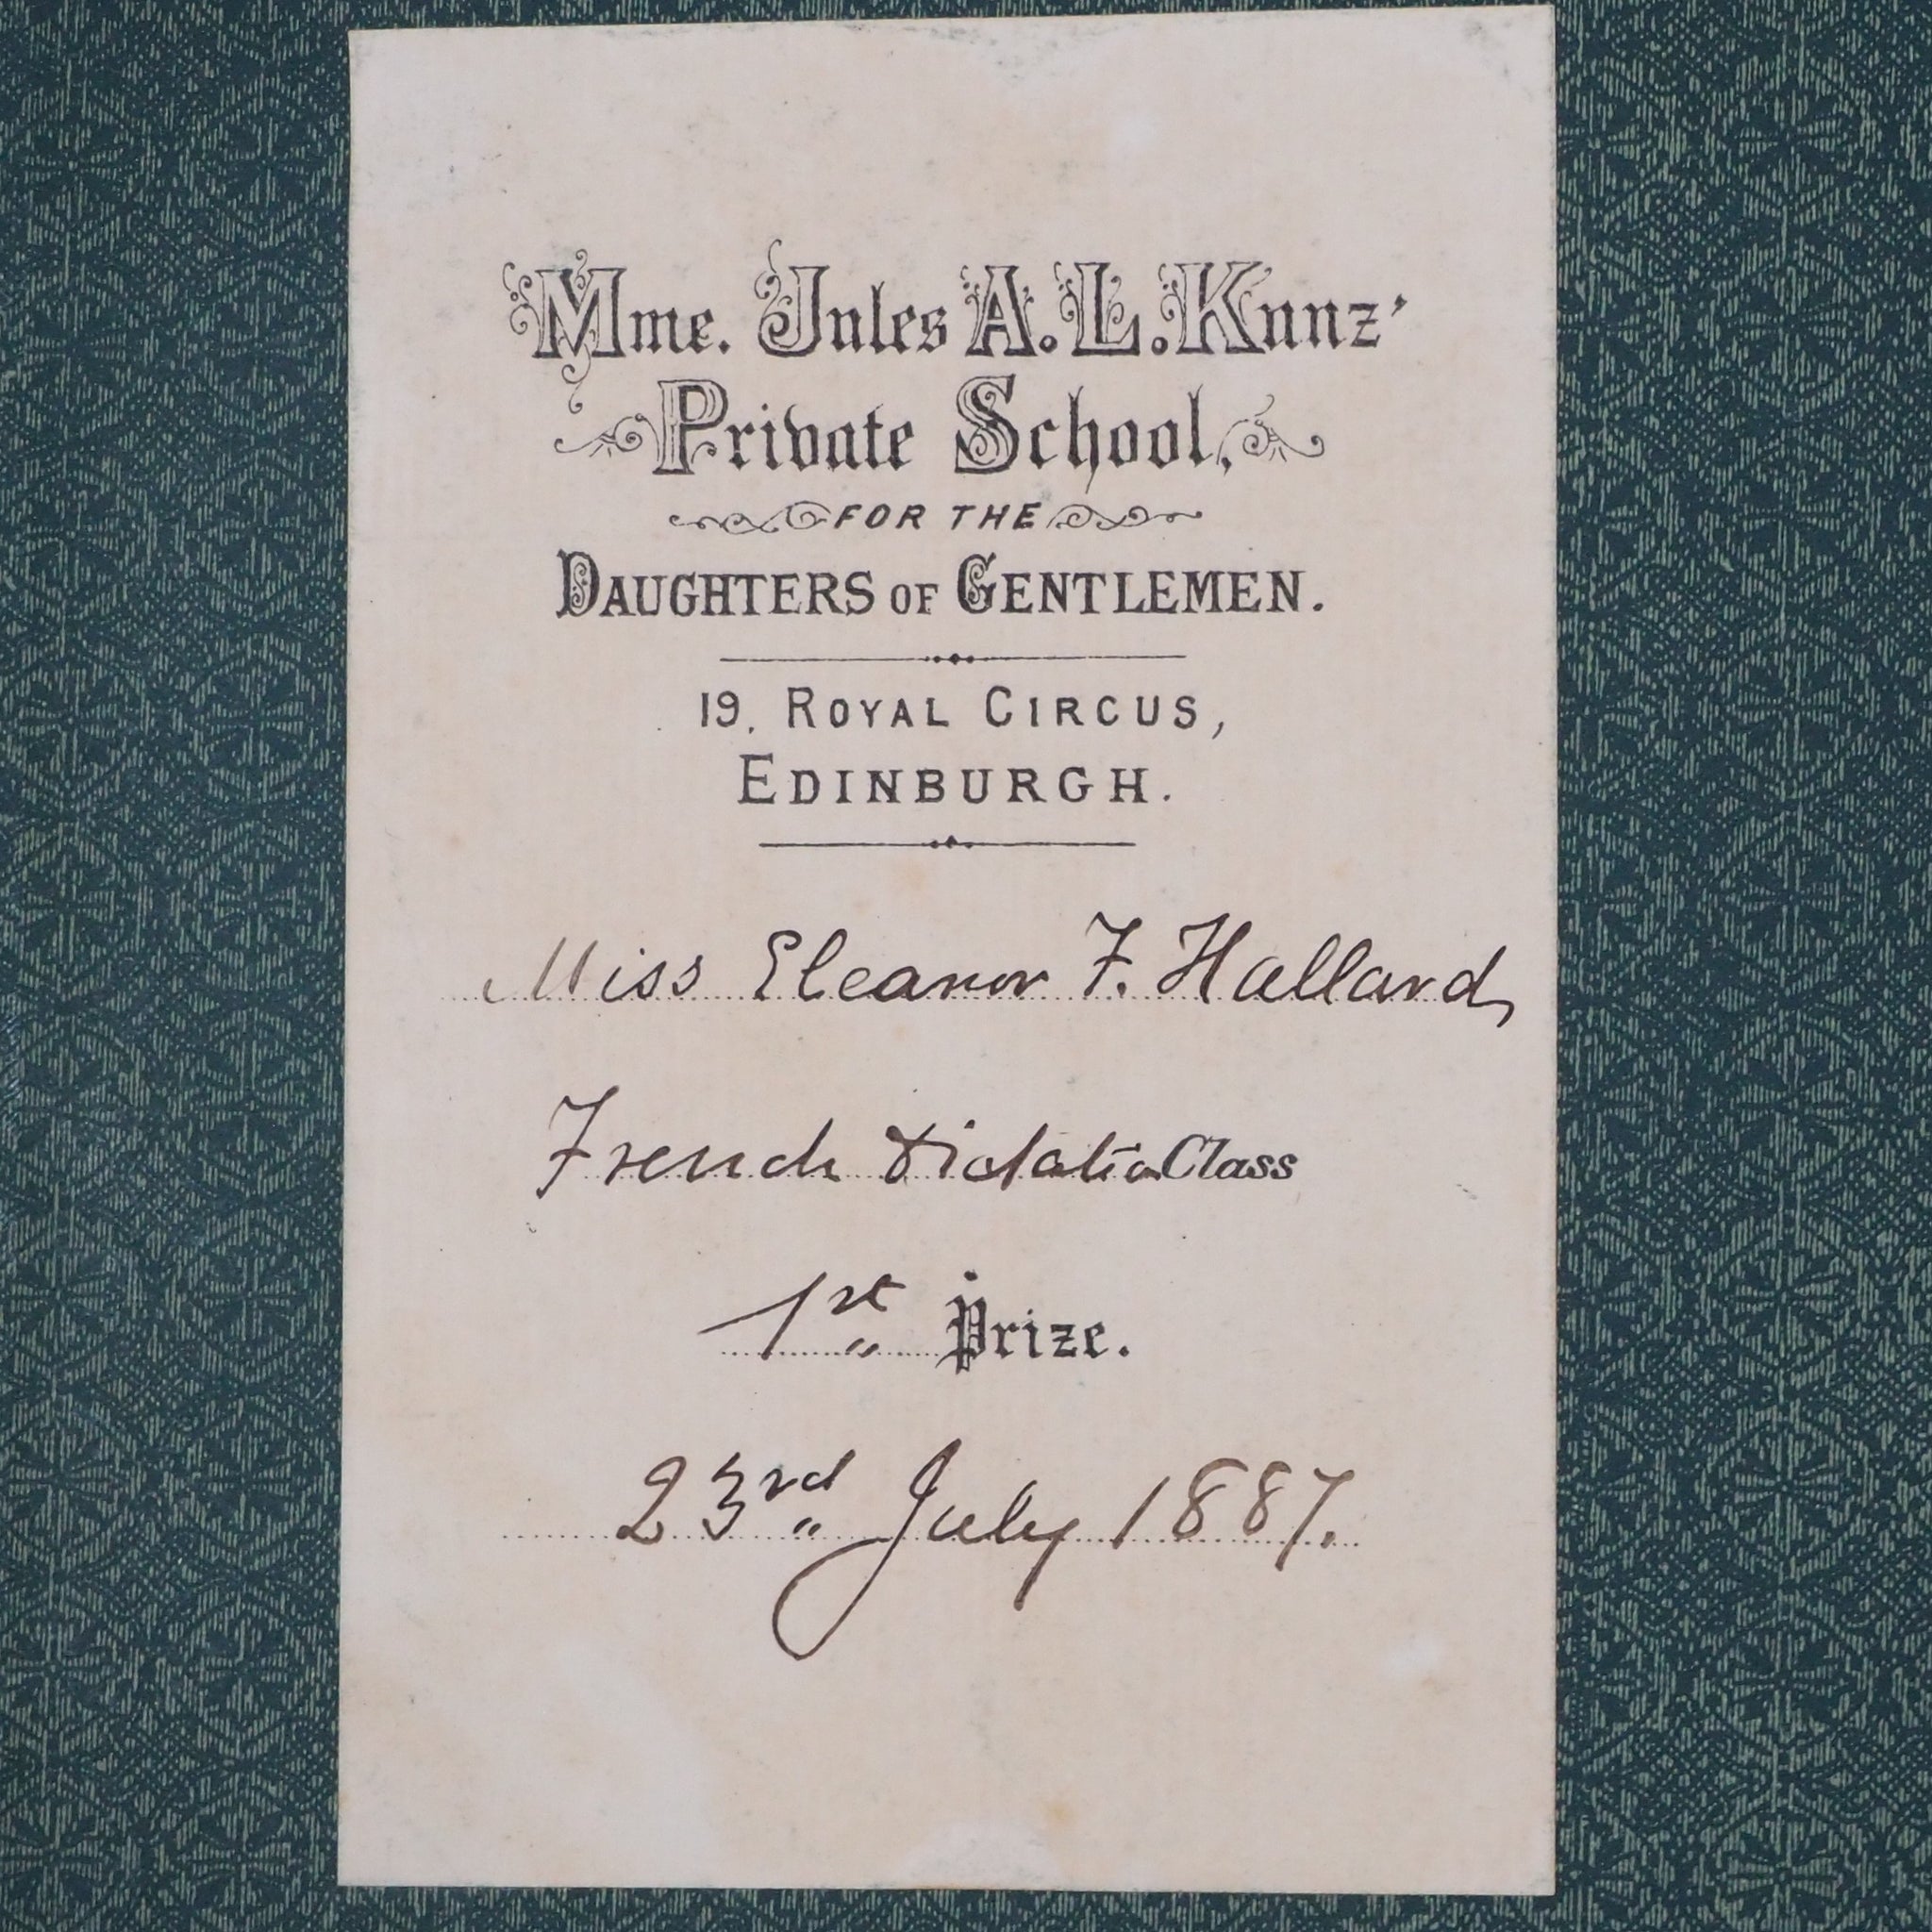 Mme. Jules A. L. Kunz'
Private School,
FOR THE
DAUGHTERS OF GENTLEMEN.
19, ROYAL CIRCUS,
EDINBURGH.
Miss Eleanor F. Hallard,
French Dictatio Class
1st Prize.
23rd July 1887.